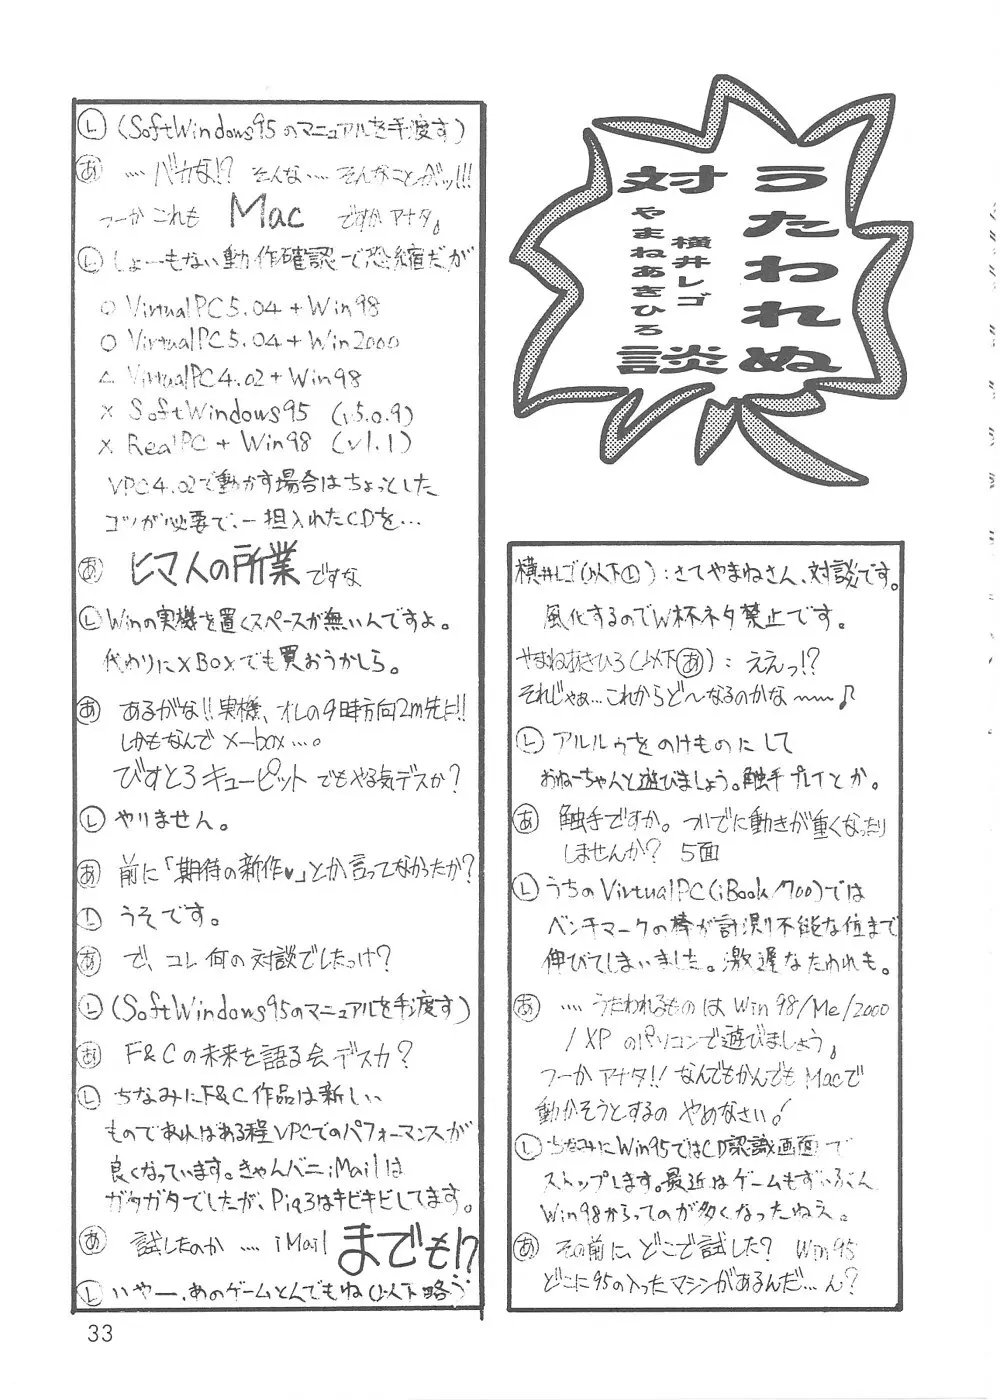 うたわれぬ
対談
横井レゴ
やまねあきひろ
横井レゴ(以下Ⓛ):さてやまねさん、対談です。
風化するのでW杯ネタ禁止です。
やまねあきひろ(以下あ):ええっ!?
それじゃぁ…これからど〜なるのかな〜〜♪
Ⓛ アルルゥをのけものにして
おねーちゃんと遊びましょう。触手プレイとか。
あ 触手ですか。ついでに動きが重くなったり
しませんか? 5面
Ⓛ うちのVirtualPC(iBook/700)では
ベンチマークの棒が計測不能な位まで
伸びてしまいました。激遅なたわれも。
あ ….うたわれるものは Win98/Me/2000
/XP のパソコンで遊びましょう。
つーかアナタ!! なんでもかんでもMacで
動かそうとするの やめなさい!
Ⓛ ちなみにWin95ではCD認識画面で
ストップします。最近はゲームもずいぶん
Win98からってのが多くなったねえ。
あ その前に、どこで試した? Win95
どこに95の入ったマシンがあるんだ…ん?
Ⓛ (SoftWindows95のマニュアルを手渡す)
あ ….バカな!? そんな….そんなことがッ!!!
つーかこれも Mac ですかアナタ。
Ⓛ しょーもない動作確認で恐縮だが
○ VirtualPC5.04+Win98
○ VirtualPC5.04+Win2000
△ VirtualPC4.02+Win98
× SoftWindows95 (v5.0.9)
× RealPC+Win98 (v1.1)
VPC4.02で動かす場合はちょっとした
コツが必要で、一担入れたCDを…
あ ヒマ人の所業ですな
Ⓛ Winの実機を置くスペースが無いんですよ。
代わりにXBoxでも買おうかしら。
あ あるがな!!実機、オレの9時方向2m先に!!
しかもなんでX-box…。
びすとろキューピットでもやる気デスか?
Ⓛ やりません。
あ 前に「期待の新作♥」とか言ってなかったか?
Ⓛ うそです。
あ で、コレ何の対談でしたっけ?
Ⓛ (SoftWindows95のマニュアルを手渡す)
あ F&Cの未来を語る会デスカ?
Ⓛ ちなみにF&C作品は新しい
ものであればある程VPCでのパフォーマンスが
良くなっています。きゃんバニiMailは
ガタガタでしたが、Pia3はキビキビしてます。
あ 試したのか….iMail までも!?
Ⓛ いやー、あのゲームとんでもね(以下略)
33